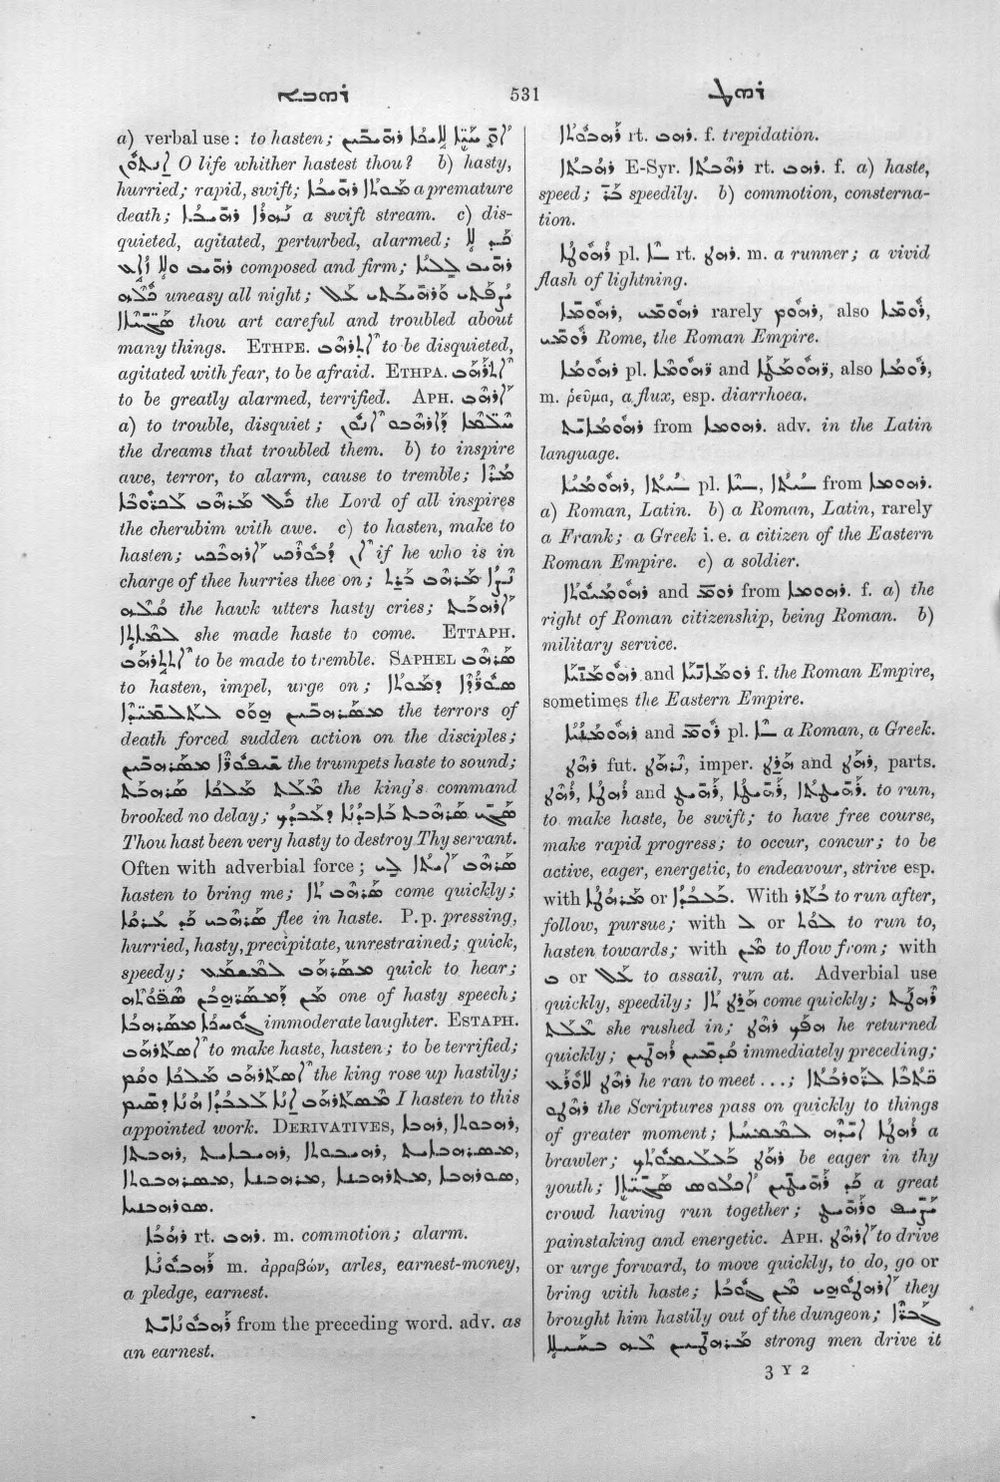 ܪܗܒܬ 531 ܪܗܛ
a) verbal use: to hasten; ܐܘ ܚܝܐ ܠܐܝܟܐ ܪܗܝܒܝܢ
ܐܢܬܘܢ O life whither hastest thou? b) hasty,
hurried; rapid, swift; ܡܘܬܐ ܪܗܝܒܐ a premature
death; ܢܗܪܐ ܪܗܝܒܐ a swift stream. c) dis-
quieted, agitated, perturbed, alarmed; ܩܝܡ ܠܐ
ܙܐܥ ܘܠܐ ܪܗܝܒ composed and firm; ܪܗܝܒ ܠܠܝܐ
ܟܠܗ uneasy all night; ܝܨܦܬܝ ܘܪܗܝܒܬܝ ܥܠ
ܣܓܝܐܬܐ thou art careful and troubled about
many things. ETHPE. ܐܬܪܗܒ to be disquieted,
agitated with fear, to be afraid. ETHPA. ܐܬܪܗܒ
to be greatly alarmed, terrified. APH. ܐܪܗܒ
a) to trouble, disquiet; ܚܠܡܐ ܕܐܪܗܒܘ ܐܢܘܢ
the dreams that troubled them. b) to inspire
awe, terror, to alarm, cause to tremble; ܡܪܐ
ܟܠ ܡܪܗܒ ܠܟܪܘܒܐ the Lord of all inspires
the cherubim with awe. c) to hasten, make to
hasten; ܐܢ ܪܒܘܟ ܐܪܗܒܟ if he who is in
charge of thee hurries thee on; ܢܨܐ ܡܪܗܒ ܒܪܬ
ܩܠܗ the hawk utters hasty cries; ܐܪܗܒܬ
ܠܡܐܬܐ she made haste to come. ETTAPH.
ܐܬܬܪܗܒ to be made to tremble. SAPHEL ܣܪܗܒ
to hasten, impel, urge on; ܣܘܪܕܐ ܕܡܘܬܐ
ܡܣܪܗܒܝܢ ܗܘܘ ܠܬܠܡܝܕܐ the terrors of
death forced sudden action on the disciples;
ܫܝܦܘܪܐ ܡܣܪܗܒܝܢ the trumpets haste to sound;
ܡܠܬ ܡܠܟܐ ܣܪܗܒܬ the king's command
brooked no delay; ܣܓܝ ܣܪܗܒܬ ܒܐܒܕܢܐ ܕܥܒܕܟ
Thou hast been very hasty to destroy Thy servant.
Often with adverbial force; ܣܪܗܒ ܐܝܬܐ ܠܝ
hasten to bring me; ܣܪܗܒ ܬܐ come quickly;
ܣܪܗܒܝ ܩܡ ܥܪܘܩ flee in haste. P.p. pressing,
hurried, hasty, precipitate, unrestrained; quick,
speedy; ܡܣܪܗܒ ܠܡܫܡܥ quick to hear;
ܡܢ ܕܡܣܪܗܒܢ ܫܦܘܬܗ one of hasty speech;
ܓܘܚܟܐ ܡܣܪܗܒܐ immoderate laughter. ESTAPH.
ܐܣܬܪܗܒ to make haste, hasten; to be terrified;
ܐܣܬܪܗܒ ܡܠܟܐ ܘܩܡ the king rose up hastily;
ܡܣܬܪܗܒ ܐܢܐ ܠܥܒܕܐ ܗܢܐ ܕܣܝܡ I hasten to this
appointed work. DERIVATIVES, ܪܗܒܐ, ܪܗܒܘܬܐ,
ܪܗܒܬܐ, ܪܗܝܒܐܝܬ, ܪܗܝܒܘܬܐ, ܡܣܪܗܒܐܝܬ,
ܡܣܪܗܒܘܬܐ, ܡܣܪܗܒܢܐ, ܡܬܪܗܒܢܐ, ܣܘܪܗܒܐ,
ܣܘܪܗܒܢܐ.
ܪܗܒܐ rt. ܪܗܒ. m. commotion; alarm.
ܪܗܒܘܢܐ m. ἀρραβών, arles, earnest-money,
a pledge, earnest.
ܪܗܒܘܢܐܝܬ from the preceding word. adv. as
an earnest.
ܪܗܒܘܬܐ rt. ܪܗܒ. f. trepidation.
ܪܗܒܬܐ E-Syr. ܪܗܒܬܐ rt. ܪܗܒ. f. a) haste,
speed; ܒܪ speedily. b) commotion, consterna-
tion.
ܪܗܘܛܐ pl. ܐ rt. ܪܗܛ. m. a runner; a vivid
flash of lightning.
ܪܗܘܡܐ, ܪܗܘܡܝ rarely ܪܗܘܡ, also ܪܘܡܐ,
ܪܘܡܝ Rome, the Roman Empire.
ܪܗܘܡܐ pl. ܪܗܘܡܐ and ܪܗܘܡܛܐ, also ܪܘܡܐ,
m. ῥεῦμα, a flux, esp. diarrhoea.
ܪܗܘܡܐܝܬ from ܪܗܘܡܐ. adv. in the Latin
language.
ܪܗܘܡܝܐ, ܝܬܐ pl. ܝܐ, ܝܬܐ from ܪܗܘܡܐ.
a) Roman, Latin. b) a Roman, Latin, rarely
a Frank; a Greek i.e. a citizen of the Eastern
Roman Empire. c) a soldier.
ܪܗܘܡܝܘܬܐ and ܪܘܡ from ܪܗܘܡܐ. f. a) the
right of Roman citizenship, being Roman. b)
military service.
ܪܗܘܡܢܝܐ and ܪܘܡܐܢܝܐ f. the Roman Empire,
sometimes the Eastern Empire.
ܪܗܘܡܢܝܐ and ܪܘܡ pl. ܐ a Roman, a Greek.
ܪܗܛ fut. ܢܪܗܛ, imper. ܗܪܛ and ܪܗܛ, parts.
ܪܗܛ, ܪܗܛܐ and ܪܗܝܛ, ܪܗܝܛܐ, ܪܗܝܛܬܐ. to run,
to make haste, be swift; to have free course,
make rapid progress; to occur, concur; to be
active, eager, energetic, to endeavour, strive esp.
with ܡܪܗܛܐ or ܒܥܒܕܐ. With ܒܬܪ to run after,
follow, pursue; with ܠ or ܠܘܬ to run to,
hasten towards; with ܡܢ to flow from; with
ܒ or ܥܠ to assail, run at. Adverbial use
quickly, speedily; ܗܪܛ ܬܐ come quickly; ܪܗܛܬ
ܥܠܬ she rushed in; ܪܗܛ ܗܦܟ he returned
quickly; ܩܕܡܝܢ ܪܗܛܝܢ immediately preceding;
ܪܗܛ ܠܐܘܪܥ he ran to meet ...; ܟܬܒܐ ܠܪܘܪܒܬܐ
ܪܗܛܘ the Scriptures pass on quickly to things
of greater moment; ܪܗܛܐ ܐܝܕܗ ܠܡܡܚܐ a
brawler; ܪܗܛ ܒܥܠܝܡܘܬܟ be eager in thy
youth; ܟܕ ܪܗܝܛܝܢ ܐܟܠܘܣ ܣܓܝܐܐ a great
crowd having run together; ܝܨܝܦ ܘܪܗܝܛ
painstaking and energetic. APH. ܐܪܗܛ to drive
or urge forward, to move quickly, to do, go or
bring with haste; ܐܪܗܛܘܗܝ ܡܢ ܓܘܒܐ they
brought him hastily out of the dungeon; ܓܒܪܐ
ܡܪܗܛܝܢ ܠܗ ܒܚܝܠܐ strong men drive it
3 Y 2